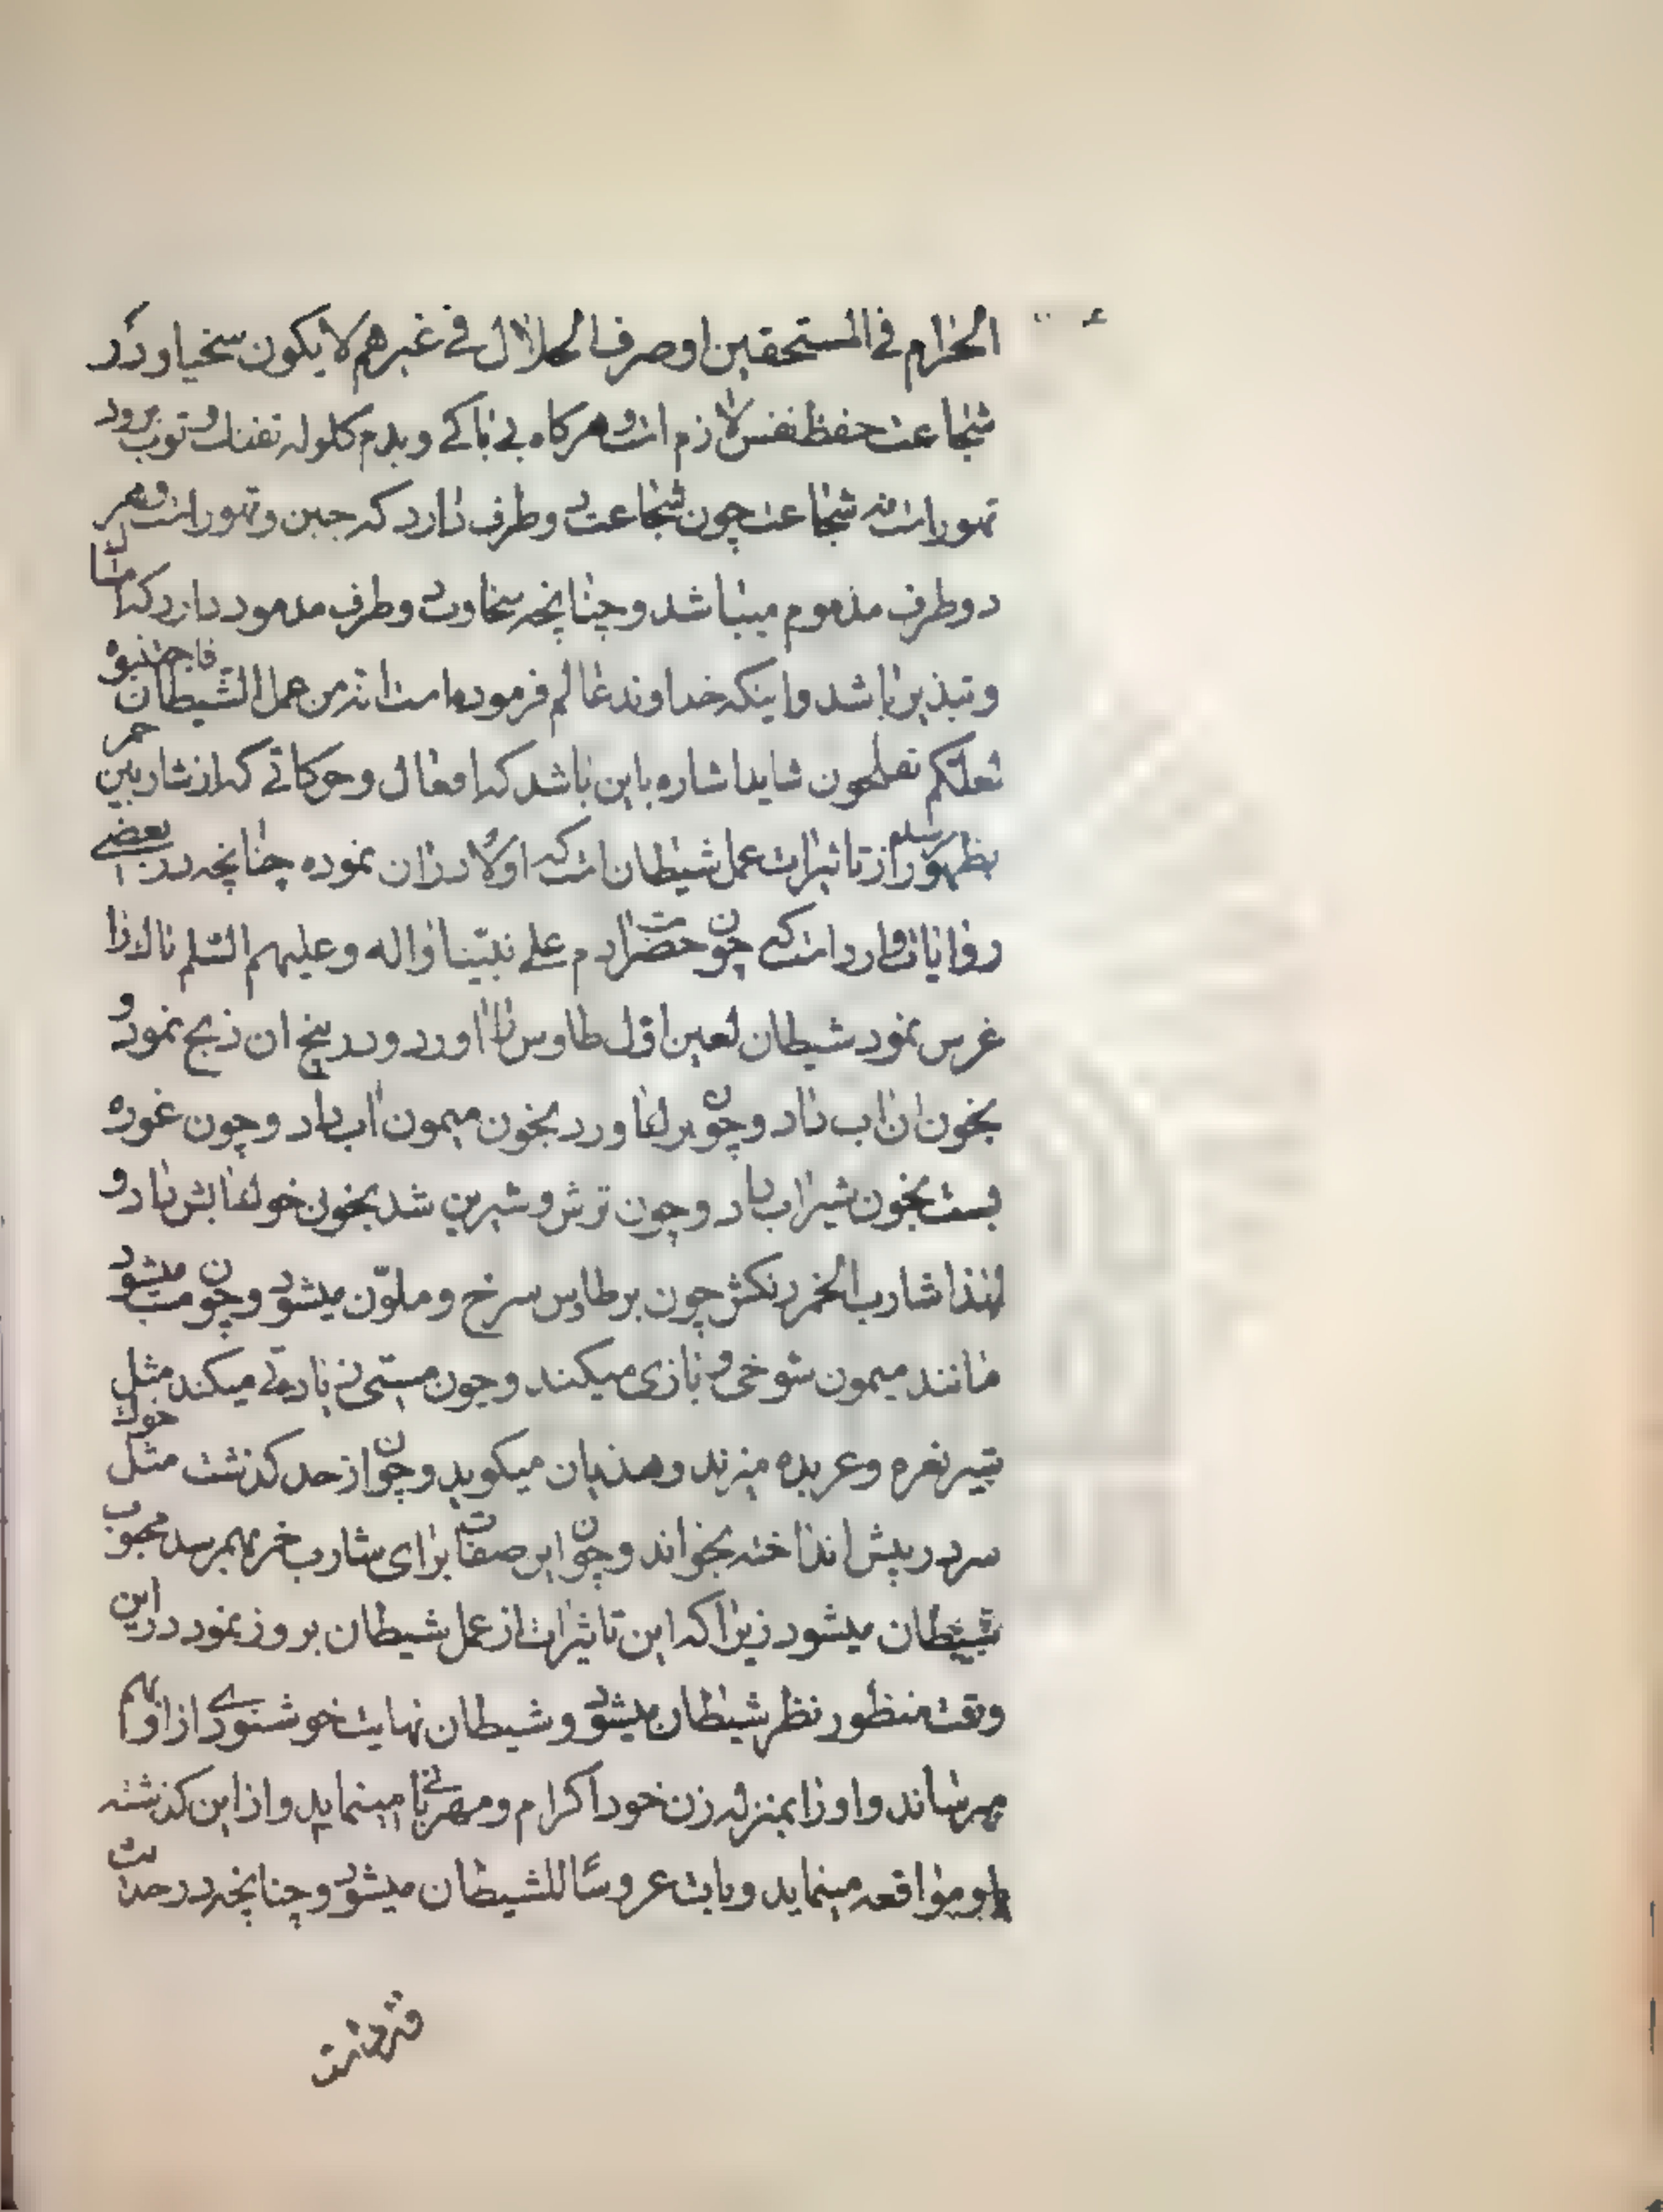 الحرام فی المستحقین او صرف الحلال فی غیرهم لا یکون سخیا و در
شجاعت حفظ نفس لازم است و هرکاه بی باکی و بدم کلوله تفنك و توپ برود
تهور است نه شجاعت چون شجاعت دو طرف دارد که جبن و تهور است و هر
دو طرف مذموم میباشد و چنانچه سخاوت دو طرف مذموم دارد که امساك
و تبذیر باشد و اینکه خداوند عالم فرموده است انه من عمل الشیطان فاجتنبوه
لعلکم تفلحون شاید اشاره باین باشد که افعال و حرکاتی که از شاربین خمر
بظهور رسد از تاثیرات عمل شیطان است که اولا در ان نموده چنانچه در بعضی
روایات وارد است که چون حضرت ادم علی نبینا و اله و علیهم السلم تاك را
غرس نمود شیطان لعین اول طاوس را اورد و در بیخ ان ذبح نمود و
بخون ان اب داد و چون برکها اورد بخون میمون اب داد و چون غوره
بست بخون شیر اب داد و چون ترش و شیرین شد بخون خوك ابش داد و
لهذا شارب الخمر رنکش چون پر طاوس سرخ و ملوّن میشود و چون مست میشود
مانند میمون شوخی و بازی میکند و چون مستی زیادتی میکند مثل
شیر نعره و عربده میزند و هذیان میکوید و چون از حد کذشت مثل خوك
سر در پیش انداخته بخواند و چون این صفات برای شارب خمر بهمرسد محبوب
شیطان میشود زیرا که این تاثیرات از عمل شیطان بروز نمود در این
وقت منظور نظر شیطان میشود و شیطان نهایت خوشنودی از او بهم
میرساند و او را بمنزله زن خود اکرام و مهربانی مینماید و از این کذشته
باو مواقعه مینماید و بات عروسًا للشیطان میشود و چنانچه در حدیث